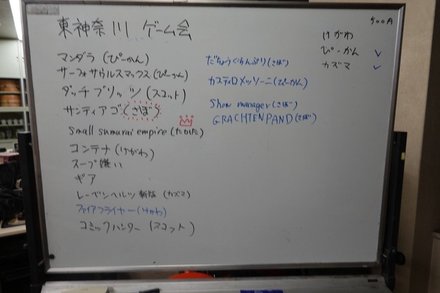 東神奈川 ゲーム会
マンダラ (ぴーかん)
サーフォサウルスマックス (ぴーかん)
ダッチブリッツ (スコット)
サンティアゴ (さぼ)
Small samurai empire (たかれん)
コンテナ (けがわ)
スープ嫌い
ギア
レーベンヘルツ 新版 (カズマ)
ファイアフライヤー (けがわ)
コミックハンター (スコット)
だちょうぐんぶり (さぼ)
カスティロメッソーニ (ぴーかん)
Show manager (さぼ)
GRACHTENPAND (さぼ)
500A
けがわ
ぴーかん
カズマ